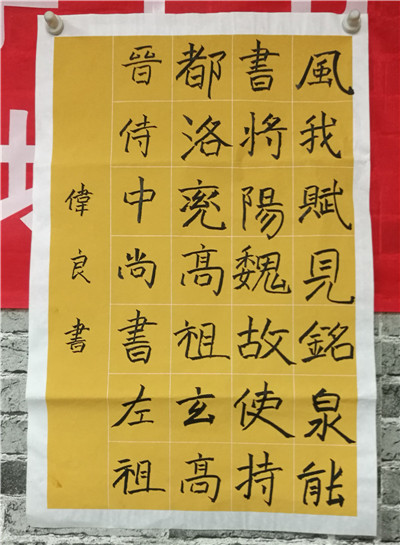 風我賦見銘泉能
書將陽魏故使持
都洛兖高祖玄高
晉侍中尚書左祖
偉良書